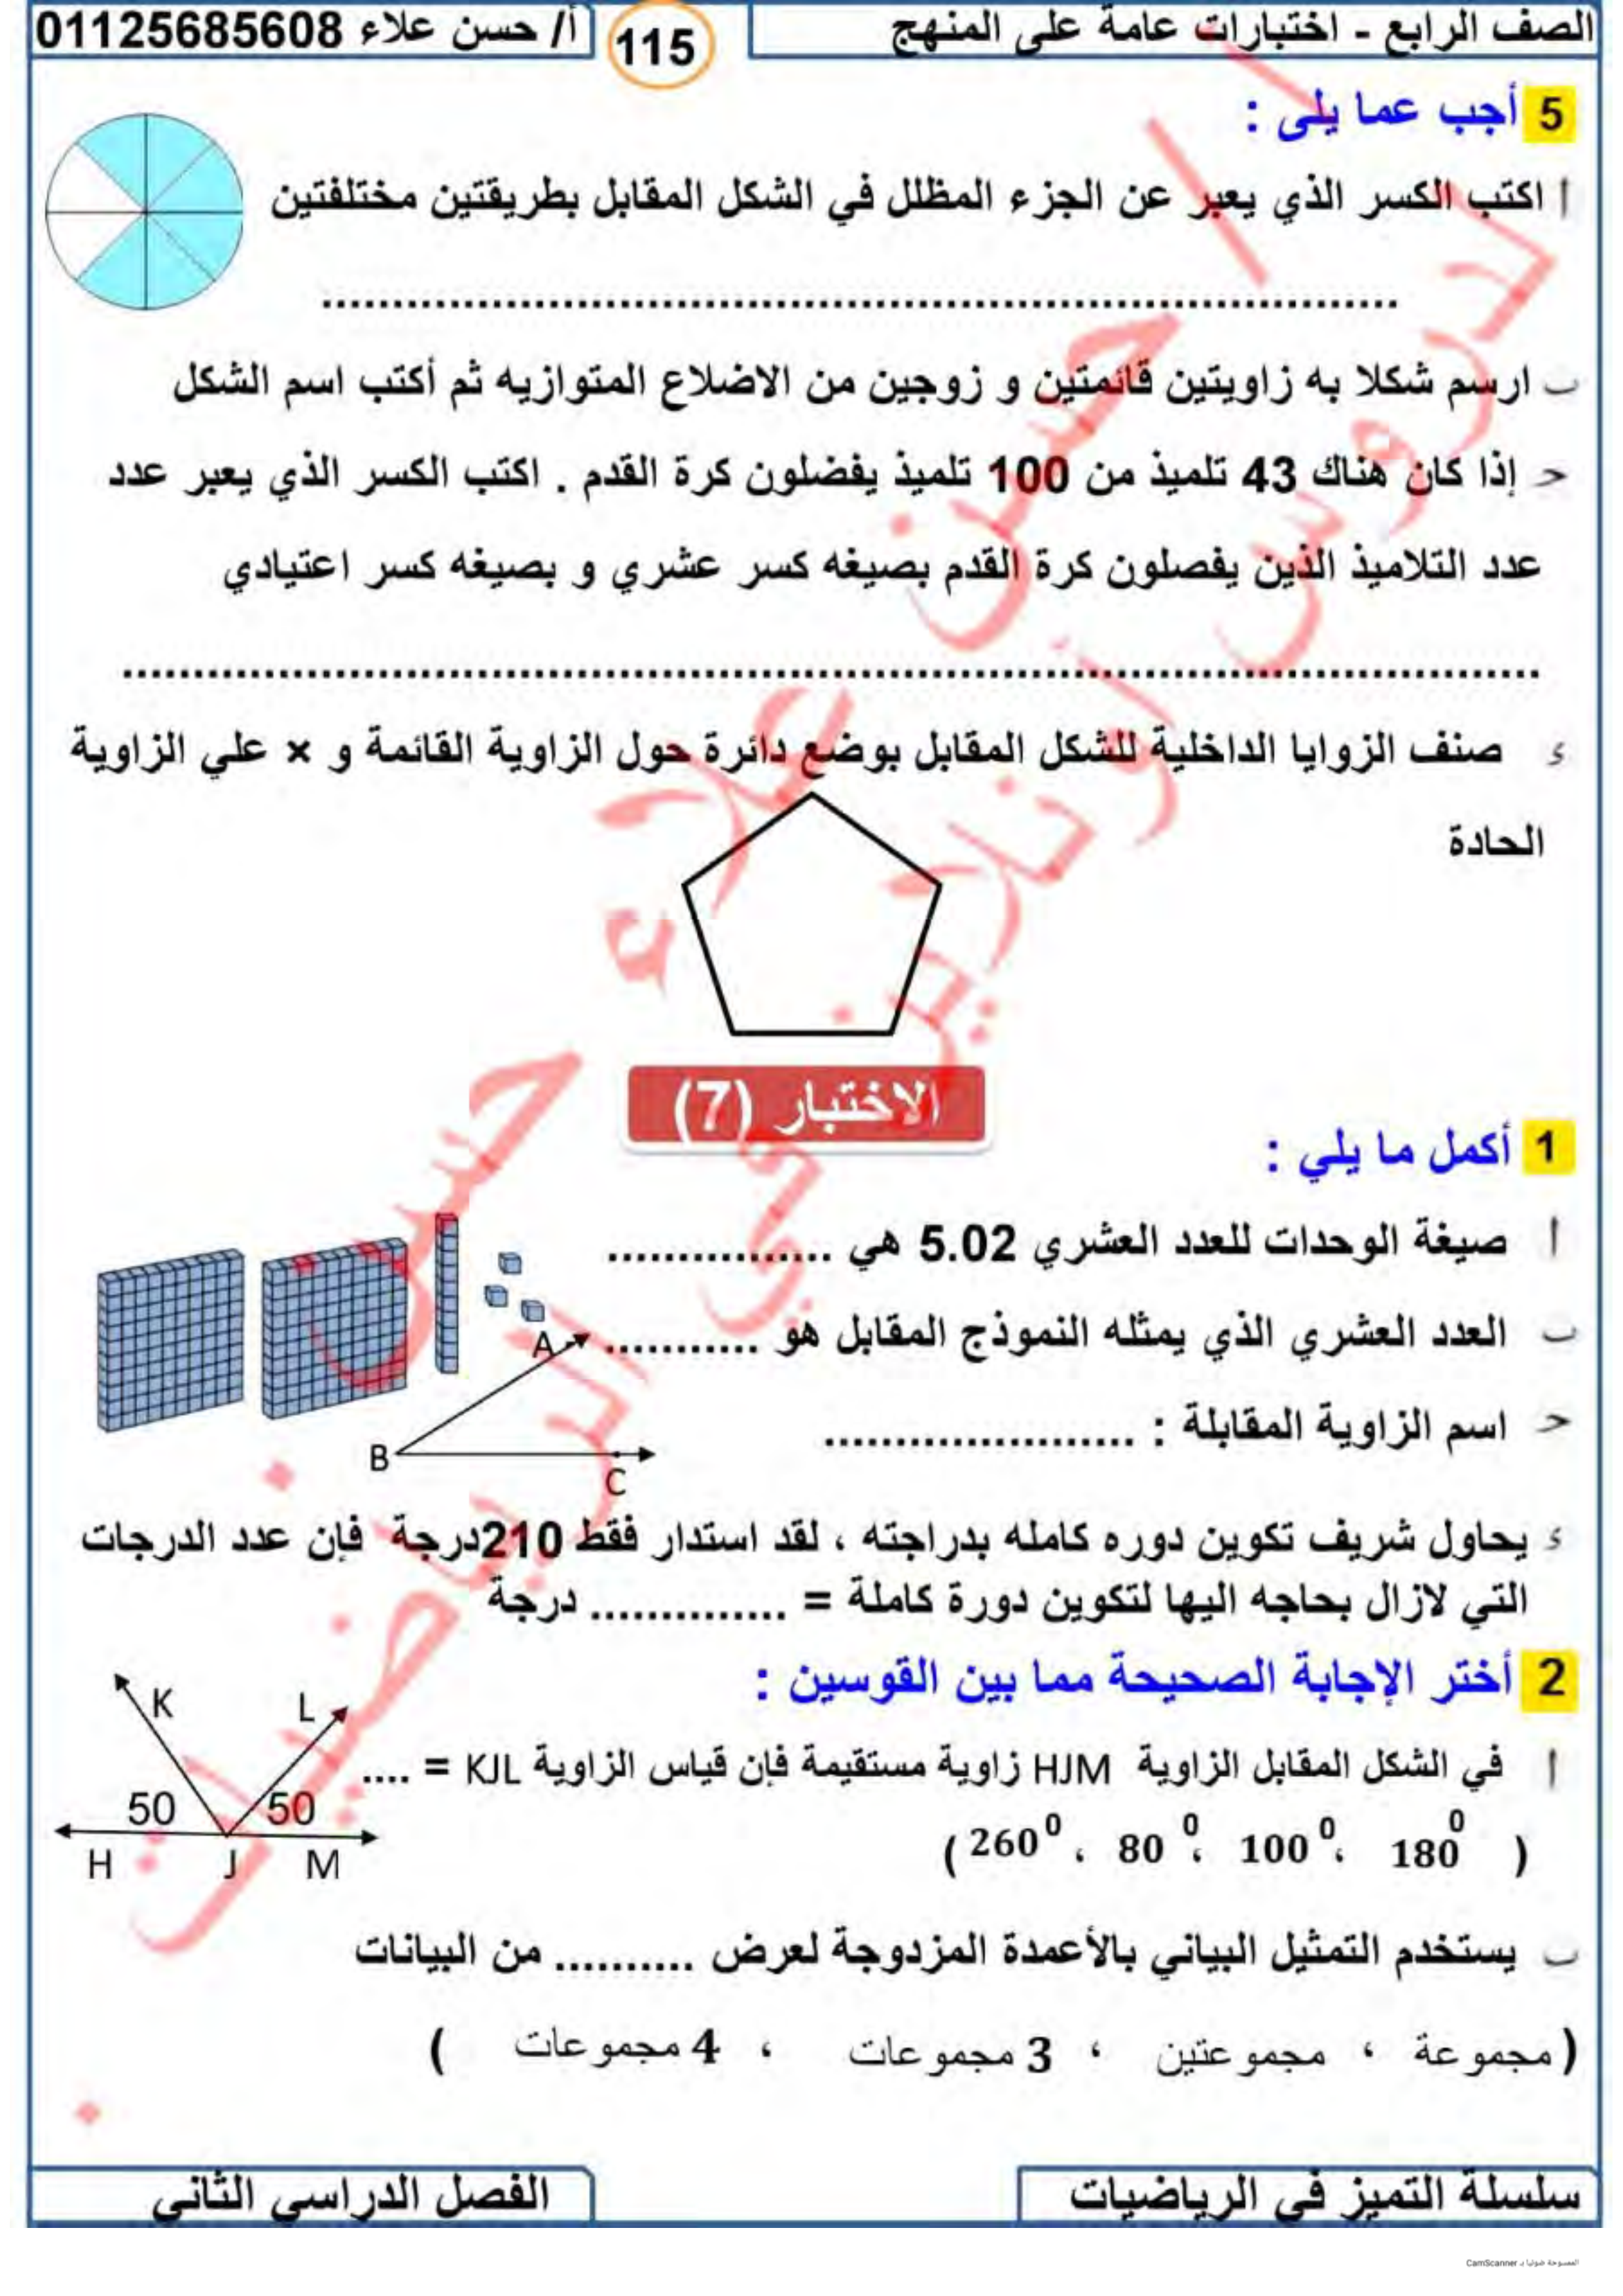 الصف الرابع - اختبارات عامة على المنهج
115
أ/ حسن علاء 01125685608
5 أجب عما يلى :
أ اكتب الكسر الذي يعبر عن الجزء المظلل في الشكل المقابل بطريقتين مختلفتين
................................................................
ب ارسم شكلا به زاويتين قائمتين و زوجين من الاضلاع المتوازيه ثم أكتب اسم الشكل
حـ إذا كان هناك 43 تلميذ من 100 تلميذ يفضلون كرة القدم . اكتب الكسر الذي يعبر عدد
عدد التلاميذ الذين يفصلون كرة القدم بصيغه كسر عشري و بصيغه كسر اعتيادي
................................................................
ء صنف الزوايا الداخلية للشكل المقابل بوضع دائرة حول الزاوية القائمة و × علي الزاوية
الحادة
الاختبار (7)
1 أكمل ما يلي :
أ صيغة الوحدات للعدد العشري 5.02 هي ................
ب العدد العشري الذي يمثله النموذج المقابل هو ...........
A
حـ اسم الزاوية المقابلة : ......................
B
C
ء يحاول شريف تكوين دوره كامله بدراجته ، لقد استدار فقط 210درجة فإن عدد الدرجات
التي لازال بحاجه اليها لتكوين دورة كاملة = .............. درجة
2 أختر الإجابة الصحيحة مما بين القوسين :
K L
أ في الشكل المقابل الزاوية HJM زاوية مستقيمة فإن قياس الزاوية KJL = ....
50 50
( 180⁰ ، 100⁰ ، 80⁰ ، 260⁰ )
H J M
ب يستخدم التمثيل البياني بالأعمدة المزدوجة لعرض .......... من البيانات
( مجموعة ، مجموعتين ، 3 مجموعات ، 4 مجموعات )
سلسلة التميز في الرياضيات
الفصل الدراسي الثاني
أ / حسن علاء حسن
لدروس أونلاين في الرياضيات
الممسوحة ضوئيا بـ CamScanner